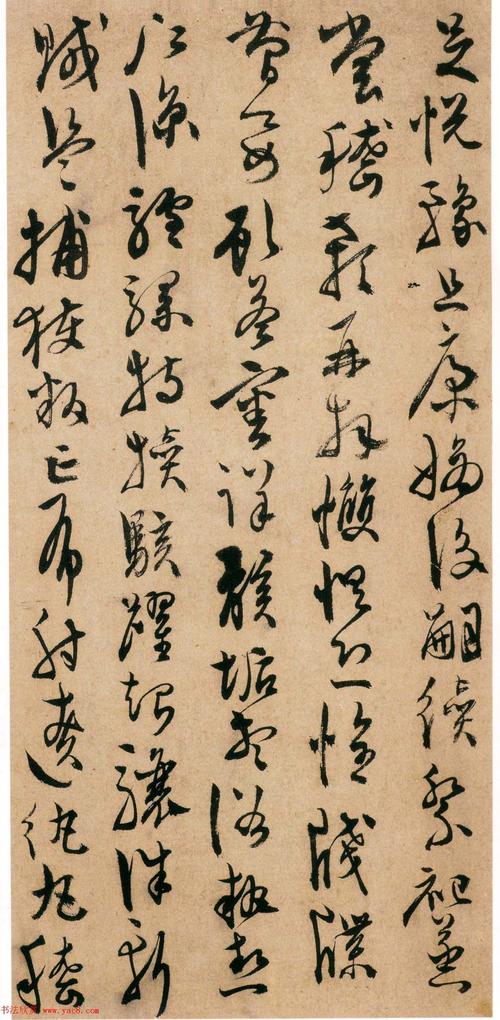 足悦豫且康嫡後嗣續祭祀蒸
嘗稽顙再拜悚懼恐惶牋牒
簡要顧答審詳骸垢想浴執熱
願涼驢騾特犢駭躍超驤誅斬
賊盜捕獲叛亡布射遼紈丸嵇
书法欣赏
www.yac8.com